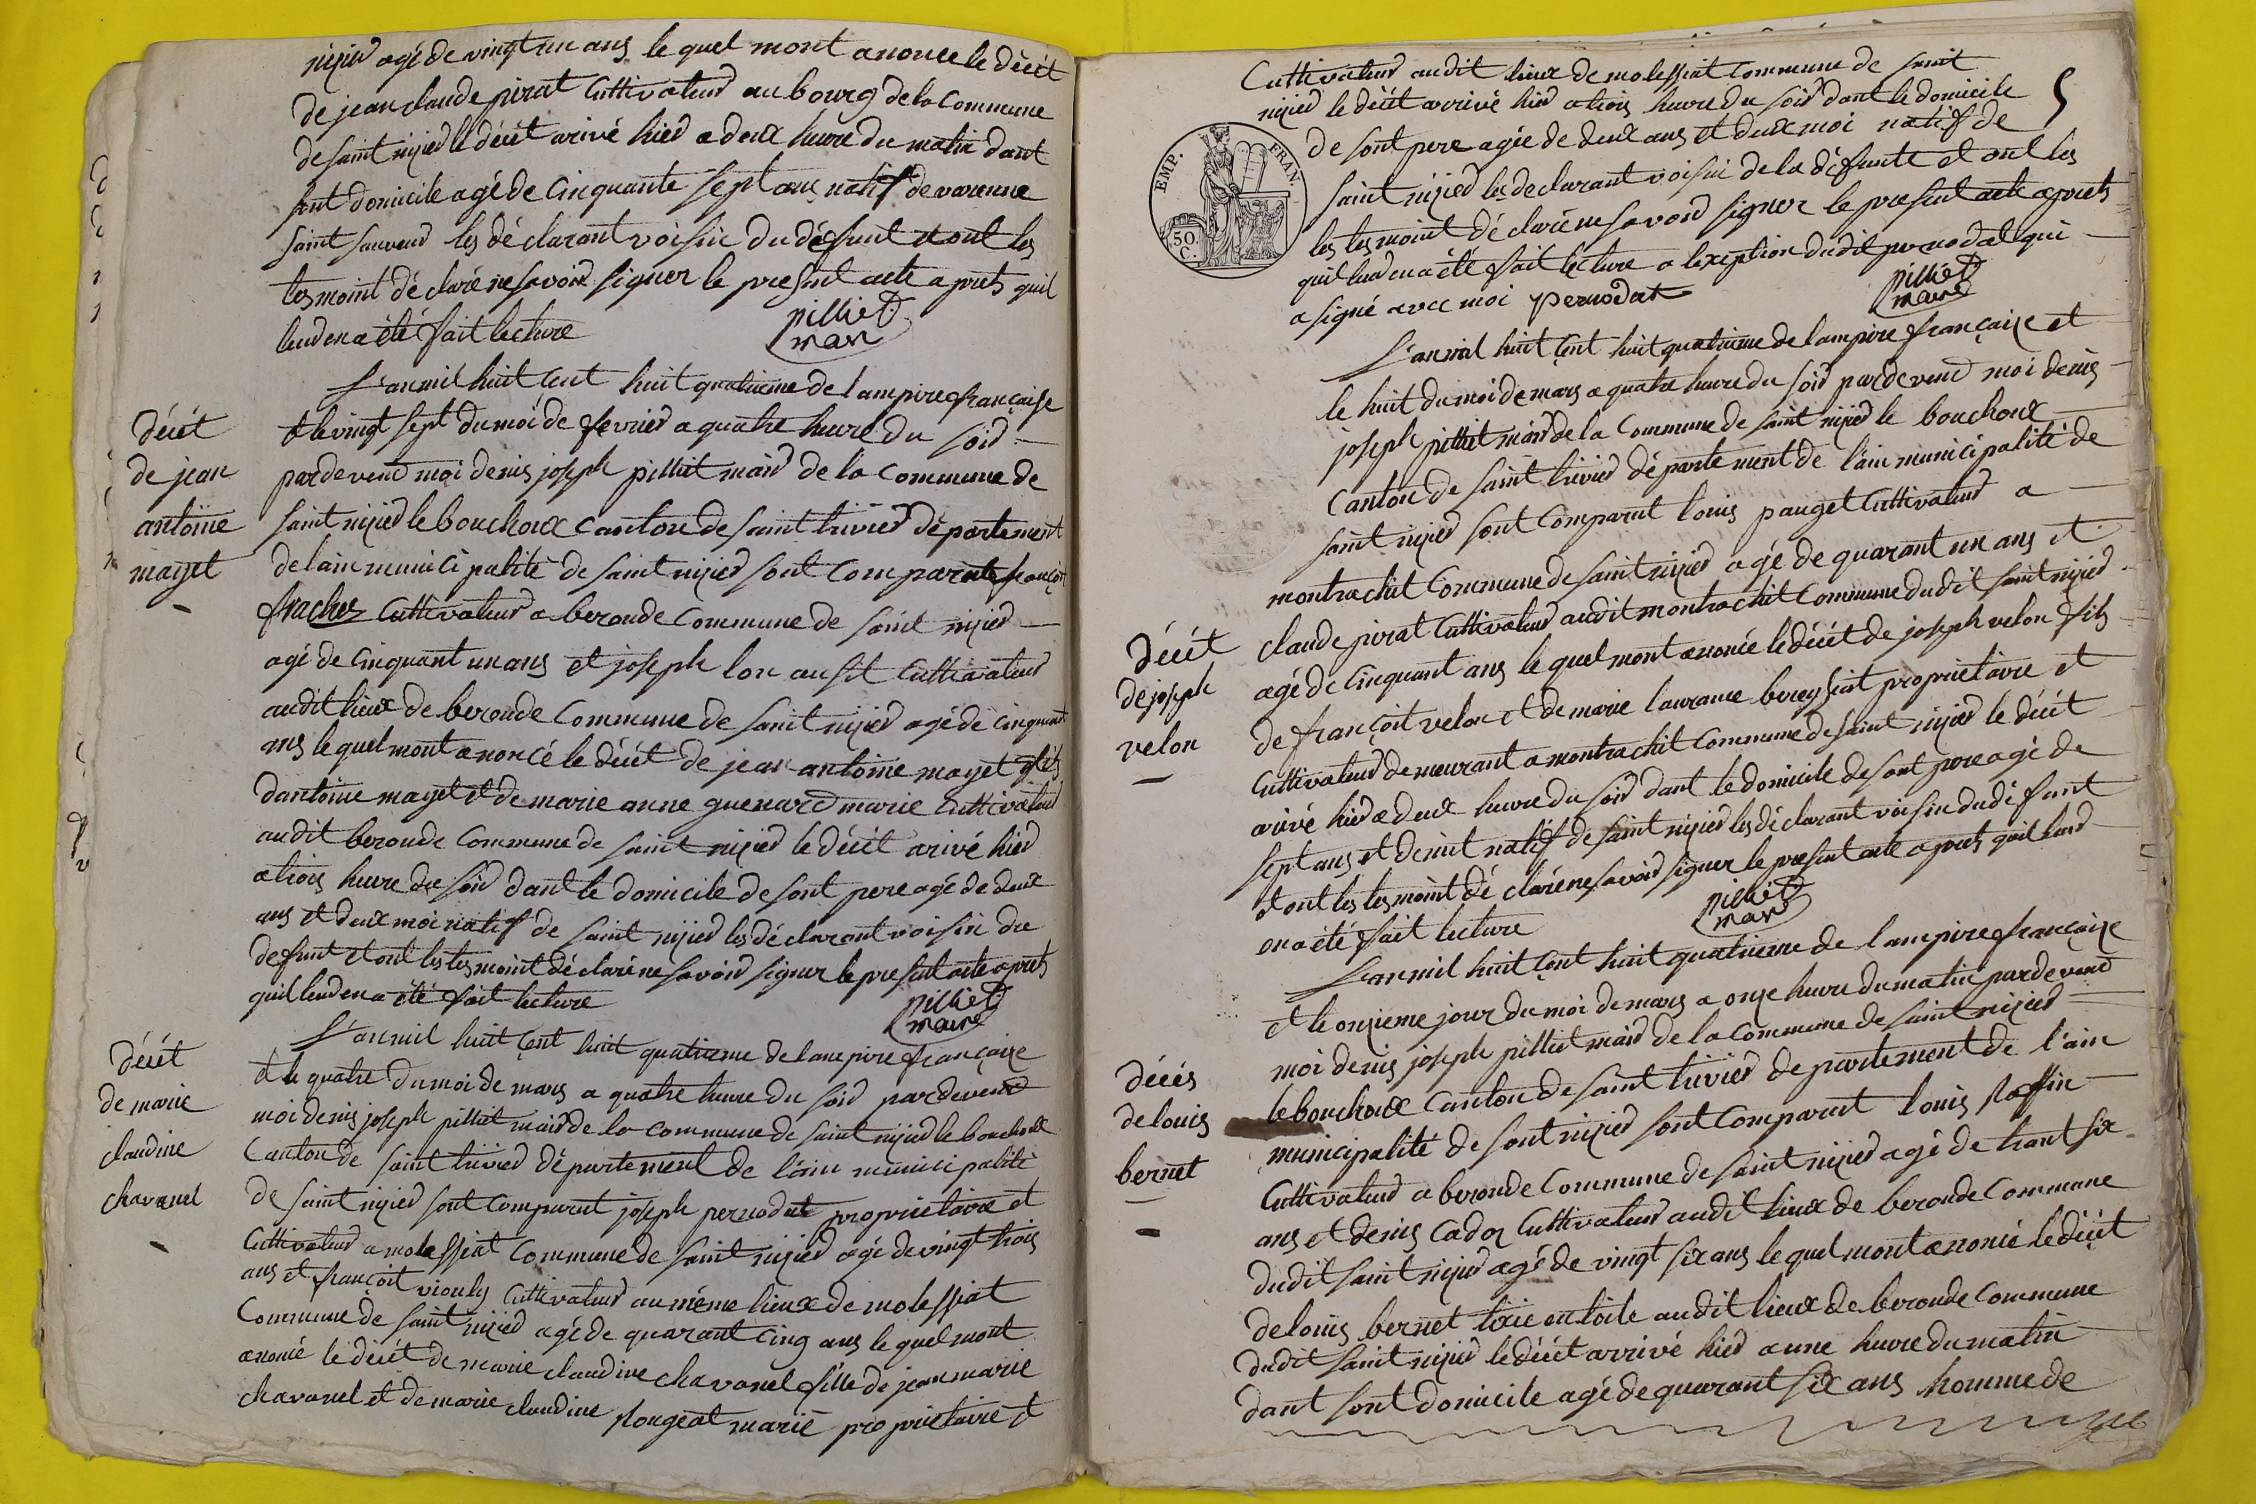 nizier agé de vingt un ans le quel mont anonce le décét
de jean claude pirat Cultivateur au bourg de la Commune
de saint nizier le décét arivé hier a deux heure du matin dant
sont domicile agé de Cinquante sept ans natif de varenne
saint sauveur les déclarant voisin du défunt et ont les
tesmoint déclaré ne savoir signer le present acte aprets quil
leur en a été fait lecture
pilliet
mair
L'an mil huit Cent huit quatrieme de lampire française
et le vingt sept du moi de fevrier a quatre heure du soir
décét
de jean
antoine
mayet
pardevend moi denis joseph pilliet mair de la Commune de
saint nizier le bouchoux Canton de saint trivier département
de lain municipalité de saint nizier sont Comparut françoit
frachez Cultivateur a beronde Commune de saint nizier
agé de Cinquant un ans et joseph lon ausit Cultivateur
audit lieux de beronde Commune de saint nizier agé de Cinquant
ans le quel mont anoncé le décét de jean antoine mayet fils
dantoine mayet et de marie anne guenard marie Cultivateur
audit beronde Commune de saint nizier le décét arivé hier
a trois heure du soir dant le domicile de sont pere agé de deux
ans et deux moi natif de saint nizier les déclarant voisin du
defunt et ont les tesmoint déclaré ne savoir signer le present acte aprets
quil leur en a été fait lecture
pilliet
maire
L'an mil huit Cent huit quatrieme de lampire française
décét
de marie
claudine
chavanel
et le quatre du moi de mars a quatre heure du soir pardevend
moi denis joseph pilliet mair de la Commune de saint nizier le bouchoux
Canton de saint trivier département de l'ain municipalité
de saint nizier sont Comparut joseph pernodat proprietaire et
Cultivateur a molessiat Commune de saint nizier agé de vingt trois
ans et françoit viouly Cultivateur au même lieux de molessiat
Commune de saint nizier agé de quarant Cinq ans le quel mont
anoncé le décét de marie claudine chavanel fille de jean marie
chavanel et de marie claudine rougeat marié proprietaire et
Cultivateur audit lieux de molessiat Commune de saint
5
nizier le décét arrivé hier a trois heure du soir dant le domicile
de sont pere agée de deux ans et deux moi natif de
EMP. FRAN.
50.
C.
saint nizier les declarant voisin de la défunte et ont les
les tesmoint déclaré ne savoir signer le present acte aprets
quil leur en a été fait lecture a lexeption dudit pernodat qui
a signé avec moi pernodat
pilliet
maire
L'an mil huit Cent huit quatrieme de lampire française et
le huit du moi de mars a quatre heure du soir pardevend moi denis
joseph pilliet mair de la Commune de saint nizier le bouchoux
Canton de saint trivier département de l'ain municipalité de
saint nizier sont Comparut louis pauget Cultivateur a
montrachit Commune de saint nizier agé de quarant un ans et
décét
de joseph
velon
claude pirat Cultivateur audit montrachit Commune dudit saint nizier
agé de Cinquant ans le quel mont anoncé le décét de joseph velon fils
de françoit velon et de marie laurance bereyssiat proprietaire et
Cultivateur demeurant a montrachit Commune de saint nizier le décét
arivé hier a deux heure du soir dant le domicile de sont pere agé de
sept ans et demit natif de saint nizier les déclarant voisin dudéfunt
et ont les tesmoint déclaré ne savoir signer le present acte aprets quil leur
en a été fait lecture
pilliet
mair
L'an mil huit Cent huit quatrieme de lampire française
et le onzieme jour du moi de mars a onze heure du matin pardevend
moi denis joseph pilliet mair de la Commune de saint nizier
décés
de louis
bernet
le bouchoux Canton de saint trivier departement de l'ain
municipalité de sont nizier sont Comparut louis raffin
Cultivateur a beronde Commune de saint nizier agé de trant six
ans et denis Cadoz Cultivateur audit lieux de beronde Commune
dudit saint nizier agé de vingt six ans le quel mont anoncé le décét
de louis bernet tixie en toile audit lieux de beronde Commune
dudit saint nizier le décét arrivé hier a une heure du matin
dant sont domicile agé de quarant six ans homme de